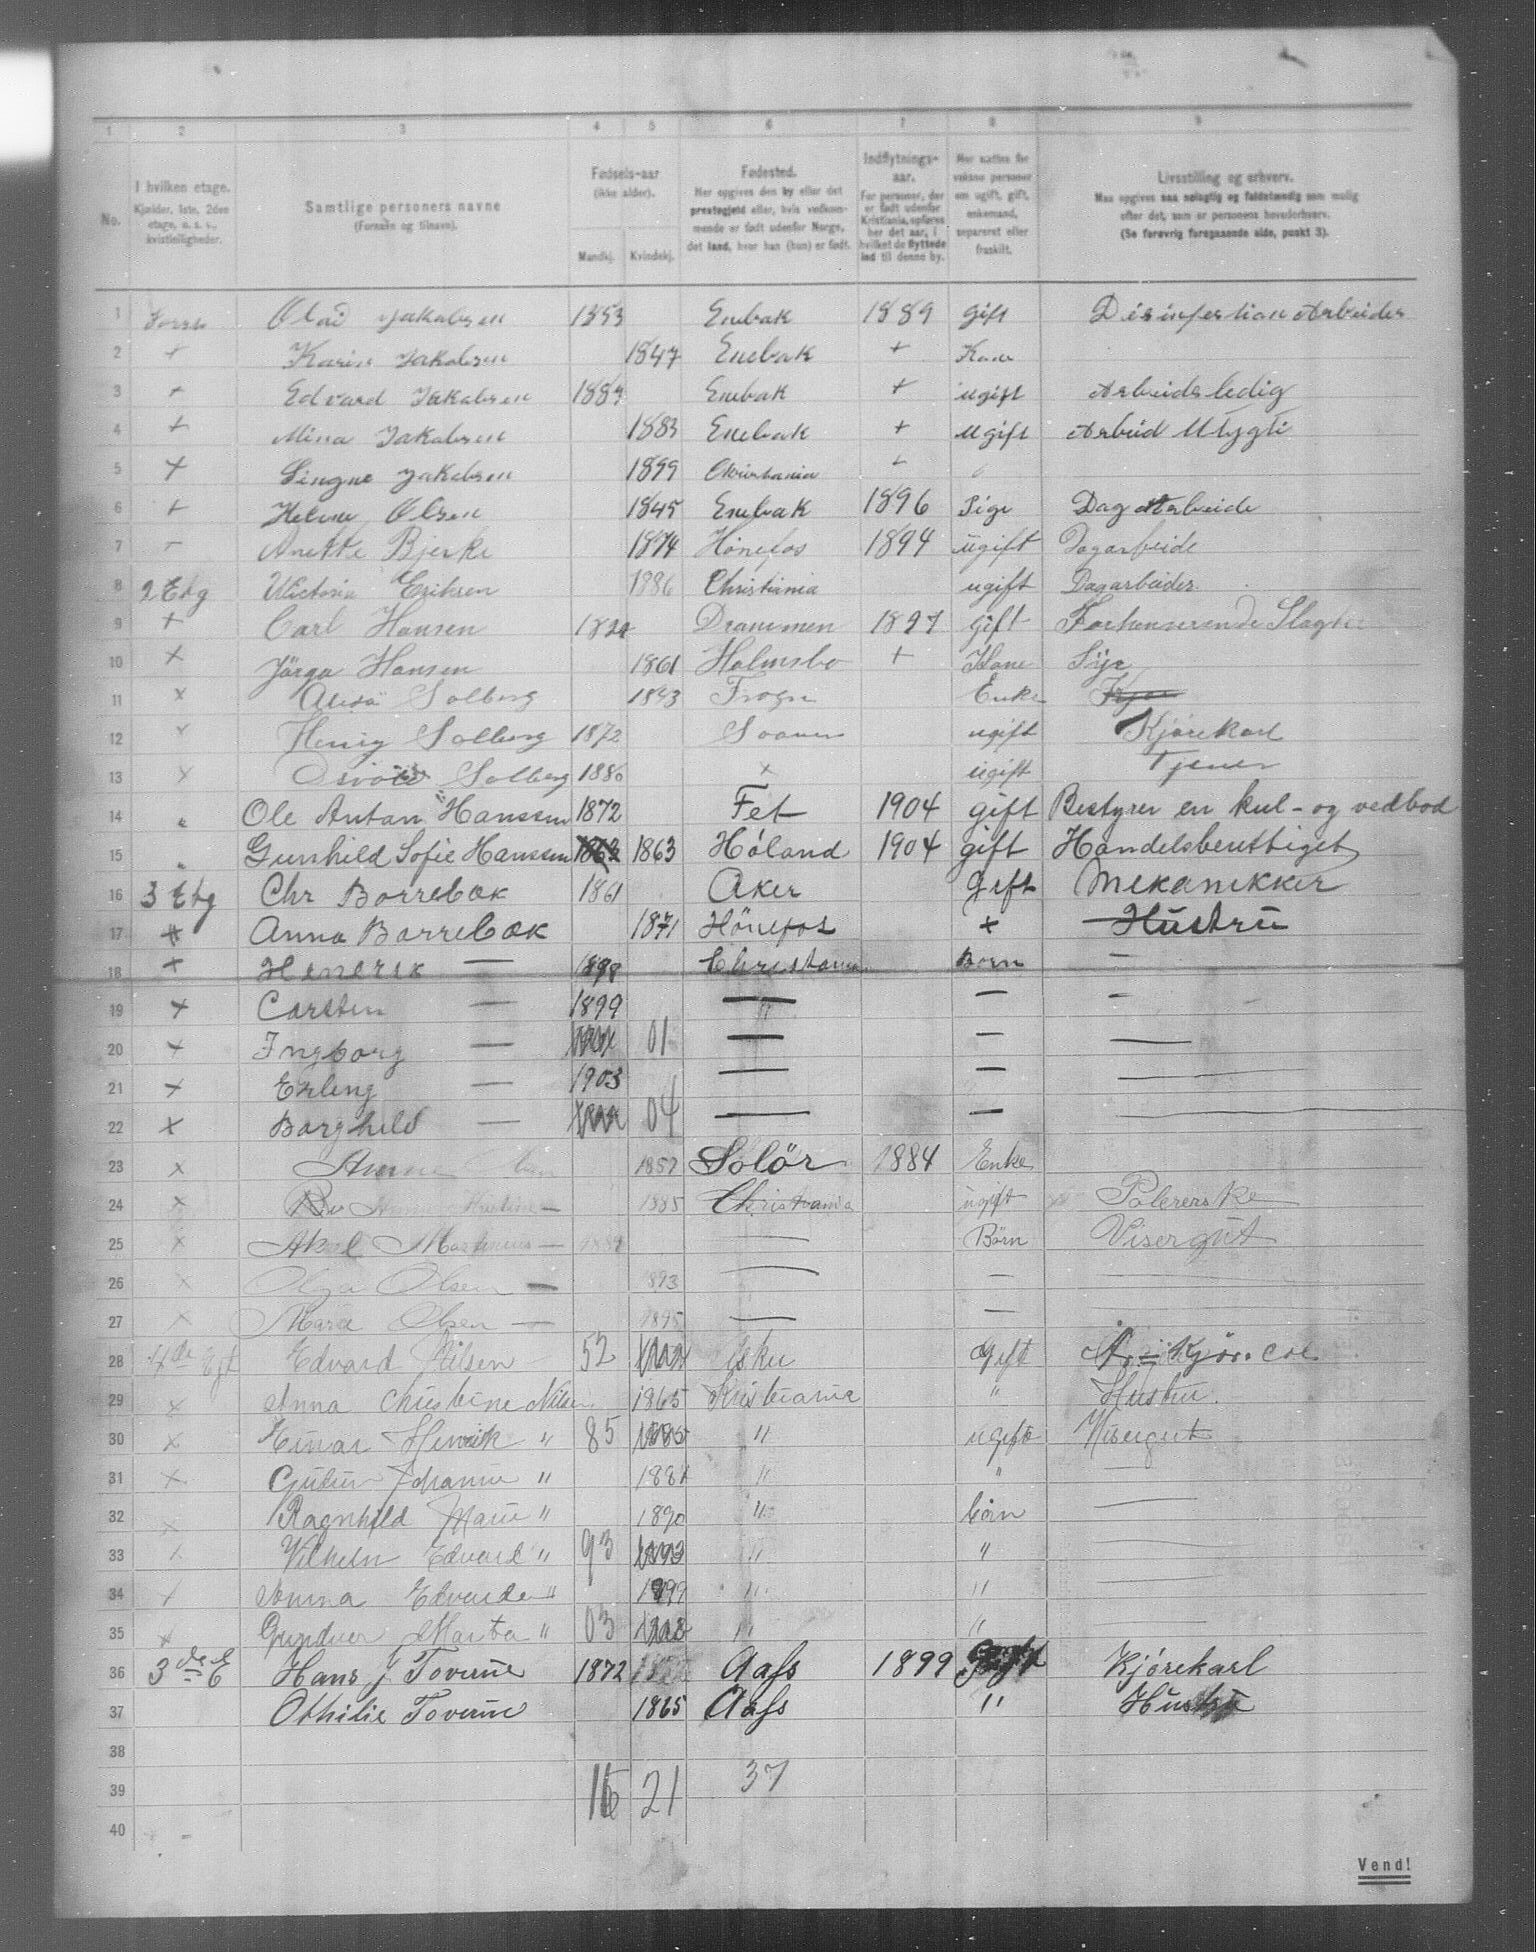 1 2 3 4 5 6 7 8 9
No.
I hvilken etage.
Kjælder, 1ste, 2den etage, o. s. v., kvistleiligheder.
Samtlige personers navne
(Fornavn og tilnavn).
Fødsels-aar
(ikke alder).
Mandkj. Kvindekj.
Fødested.
Her opgives den by eller det prestegjeld eller, hvis vedkommende er født udenfor Norge, det land, hvor han (hun) er født.
Indflytnings-aar.
For personer, der er født udenfor Kristiania, opføres her det aar, i hvilket de flyttede ind til denne by.
Her sættes for voksne personer om ugift, gift, enkemand, separeret eller fraskilt.
Livsstilling og erhverv.
Maa opgives saa nøiagtig og fuldstændig som mulig efter det, som er personens hovederhverv.
(Se forøvrig foregaaende side, punkt 3).
1 Olai Jakobsen 1853 Enebak 1889 gift Disinfestian Arbeider
2 + Karin Jakobsen 1847 Enebak + Kone
3 + Edvard Jakobsen Enebak + ugift Arbeidsledig
4 + Mina Jakobsen 1883 Enebak + ugift Arbeid
5 + Singne Jakobsen 1899
6 + Helene Olsen 1845 Enebak 1896 Pige Dag Arbeide
7 Anette Bjerke 1874 Hönefos 1894 ugift Dagarbeide
8 2 Etg Victoria Eriksen 1886 Christiania ugift Dagarbeider
9 + Carl Hansen Drammen 1897 gift Slagter
10 x Jörga Hansen 1861 Holmsbo + Kone Syr
11 x Solberg 1843 Frogn Enke
12 Henry Solberg 1872 ugift Kjörekarl
13 x Solberg 1880 x ugift Tjener
14 " Ole Antan Hanssen 1872 Fet 1904 gift Bestyrer en kul- og vedbod
15 " Gunhild Sofie Hanssen 1863 1863 Høland 1904 gift Handelsberettiget
16 3 Etg Chr Borrebæk 1861 Aker Gift Mekanikker
17 + Anna Borrebæk 1871 Hönefos + Hustru
18 + Henerik — 1898 Christania Børn —
19 + Carsten — 1899 — — —
20 + Ingborg — 01 — — —
21 + Erling — 1903 — — —
22 x Borghild — 04 — — —
23 x Anne 1857 Solör 1884 Enke
24 x — 1885 Christiania ugift Polererske
25 x Martinius — — Børn Visergut
26 x Olga Olsen — 1893 — — —
27 x Marie Olsen — 1895 — —
28 4de Edvard Nilsen 52 Gift
29 x Anna Christine Nilsen 1865 Kristiania " Hustru.
30 x Einar Henrik " 85 " ugift Visergut
31 x Johanne " " " —
32 Ragnhild Marie " 1890 " börn —
33 Vilhelm Edvard " 93 1893 " " —
34 Edvarda " 1899 " " —
35 x Marta " 03 " " —
36 3de E Hans J Toverüe 1872 Aass 1899 Gift Kjörekarl
37 Othilie Toverüe 1865 Aass " Hustru
38
39 16 21 37
40
Vend!